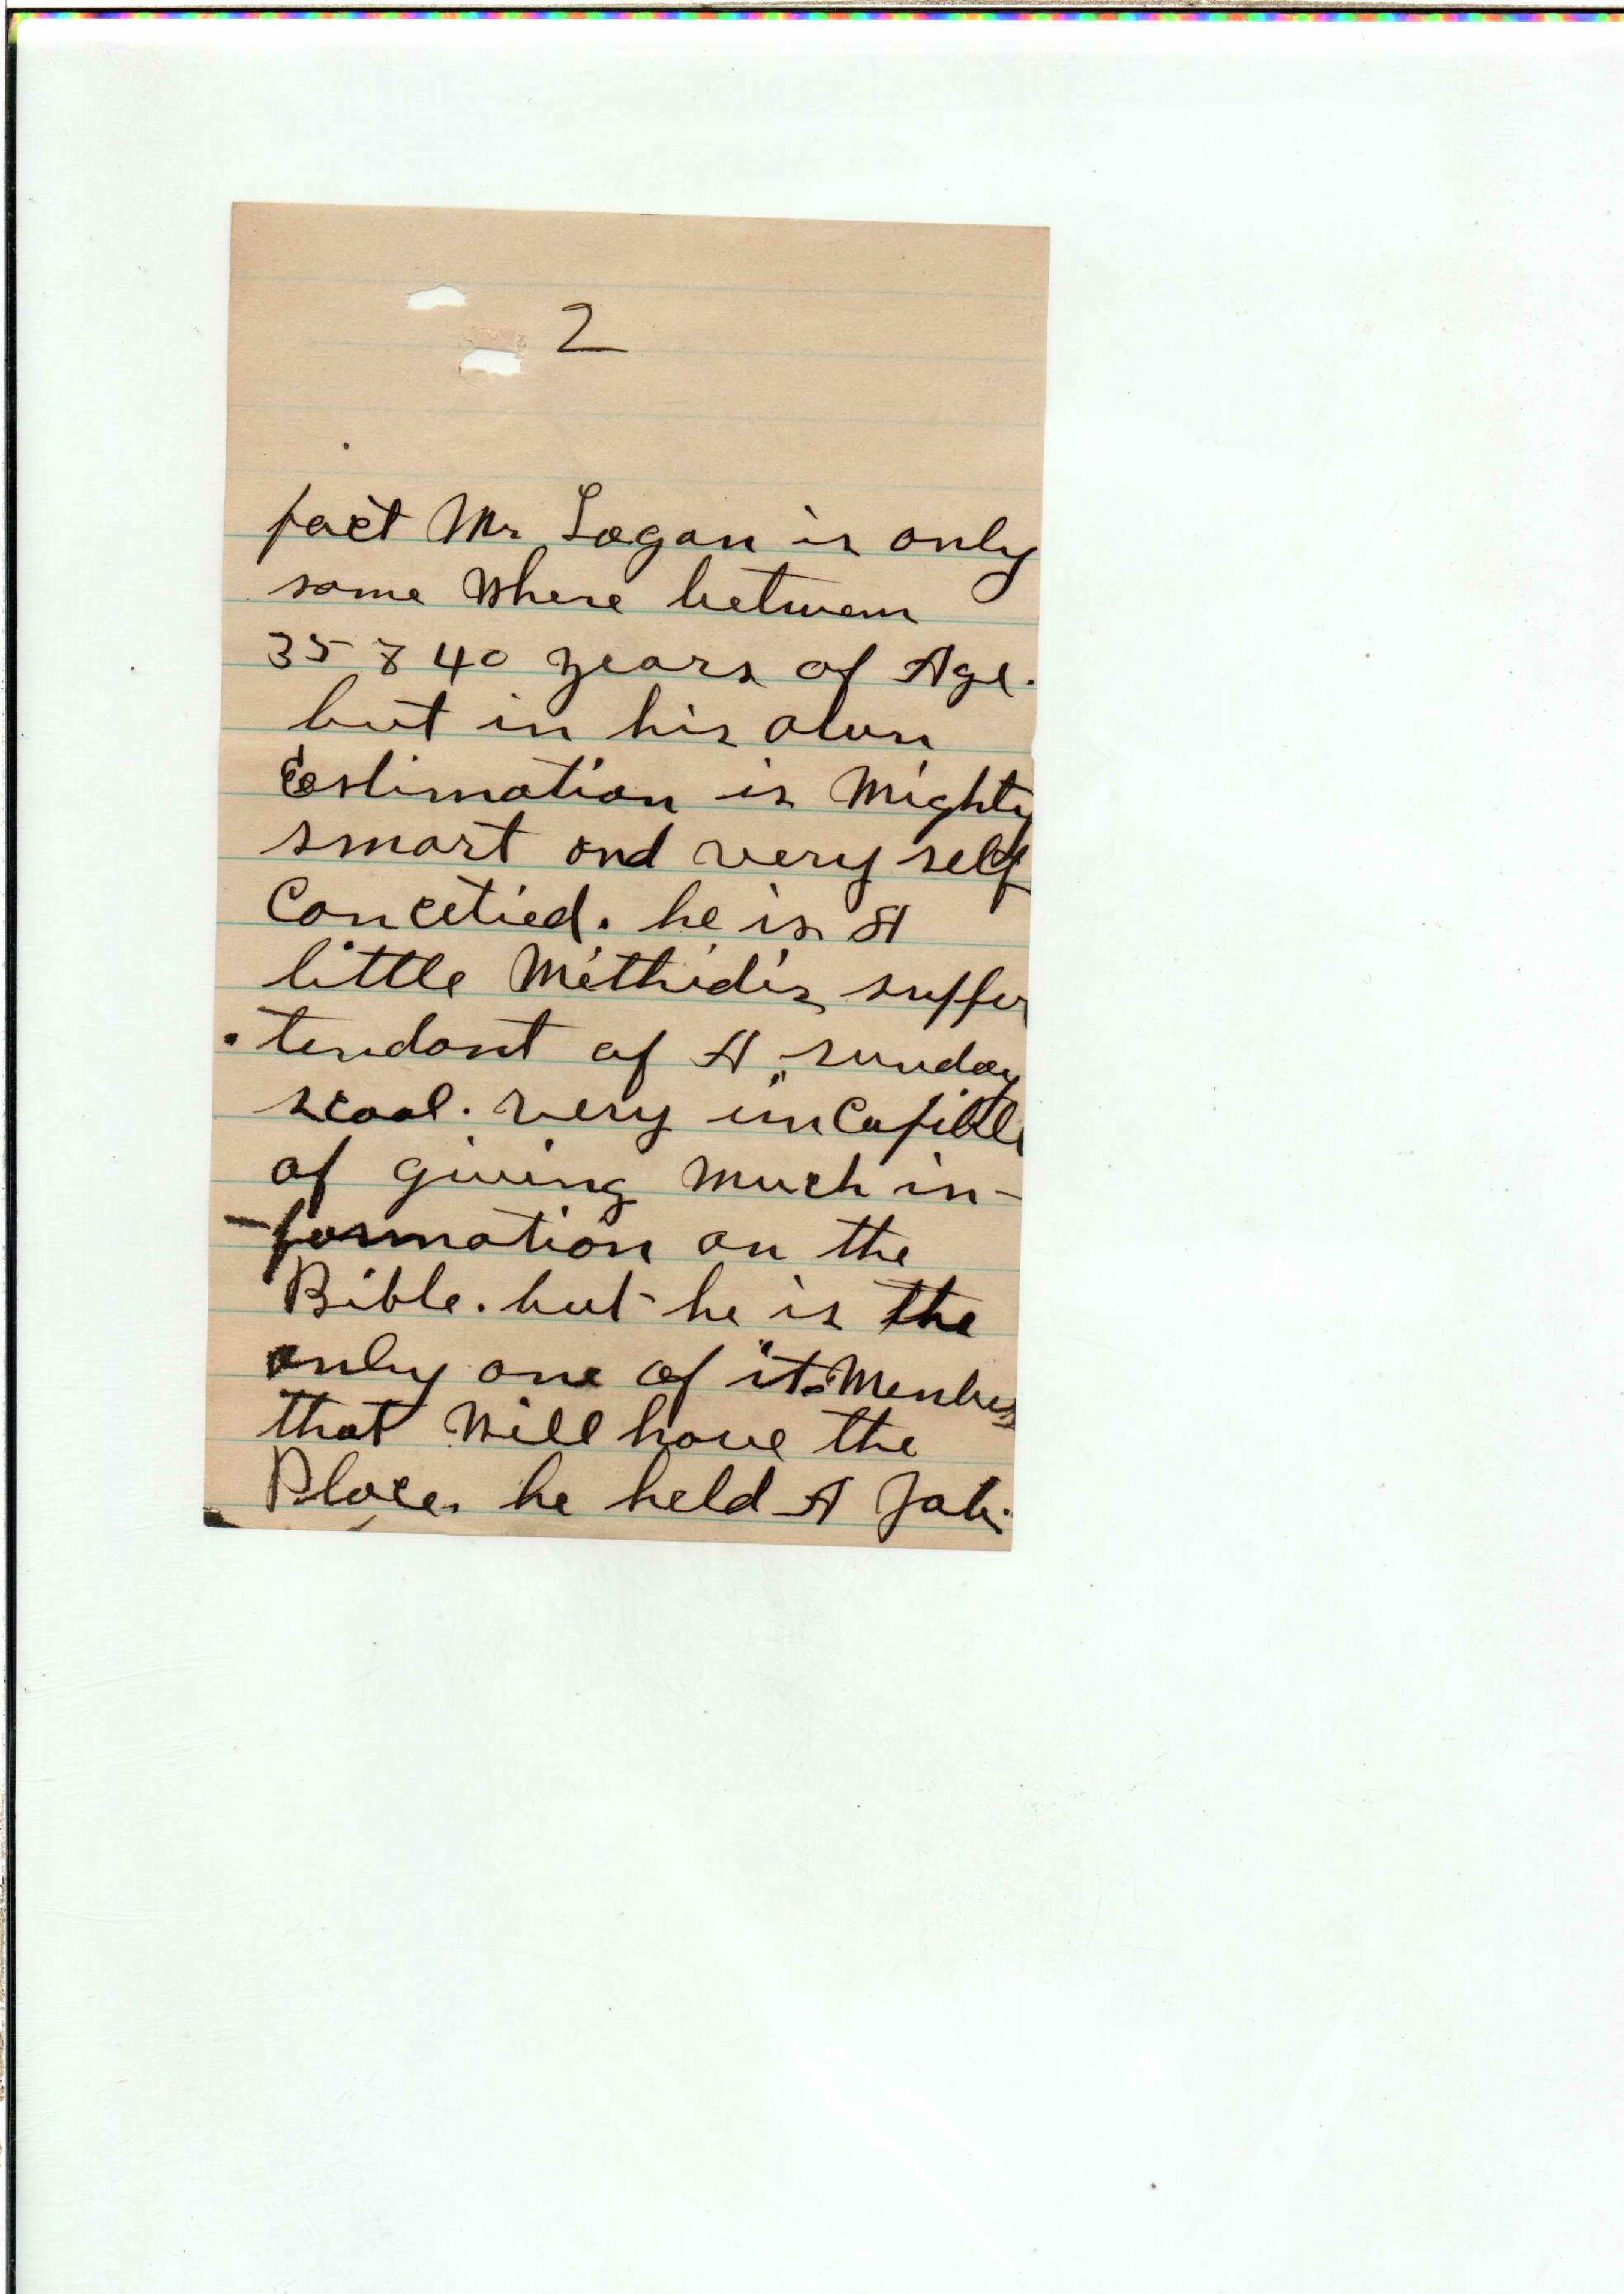 2
fact Mr Logan is only
some where between
35 & 40 years of Age.
but in his own
Eestimation is Mighty
smart and very self
Concetied. he is A
little Methidis suffer
tendant of A sunday
scool. very incapible
of giving much in-
-formation on the
Bible. but he is the
only one of its Members
that will have the
Place. he held A Job.